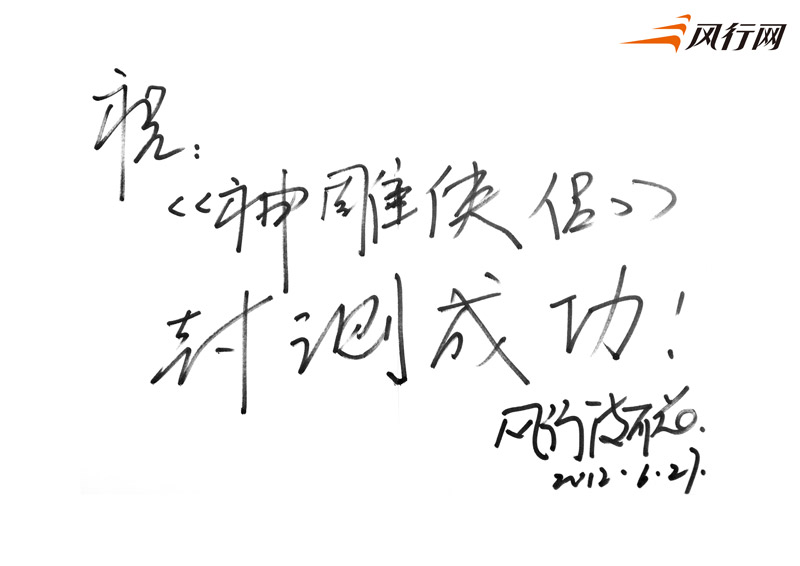 风行网
祝:
《神雕侠侣》
封测成功!
风行
2012.6.27.